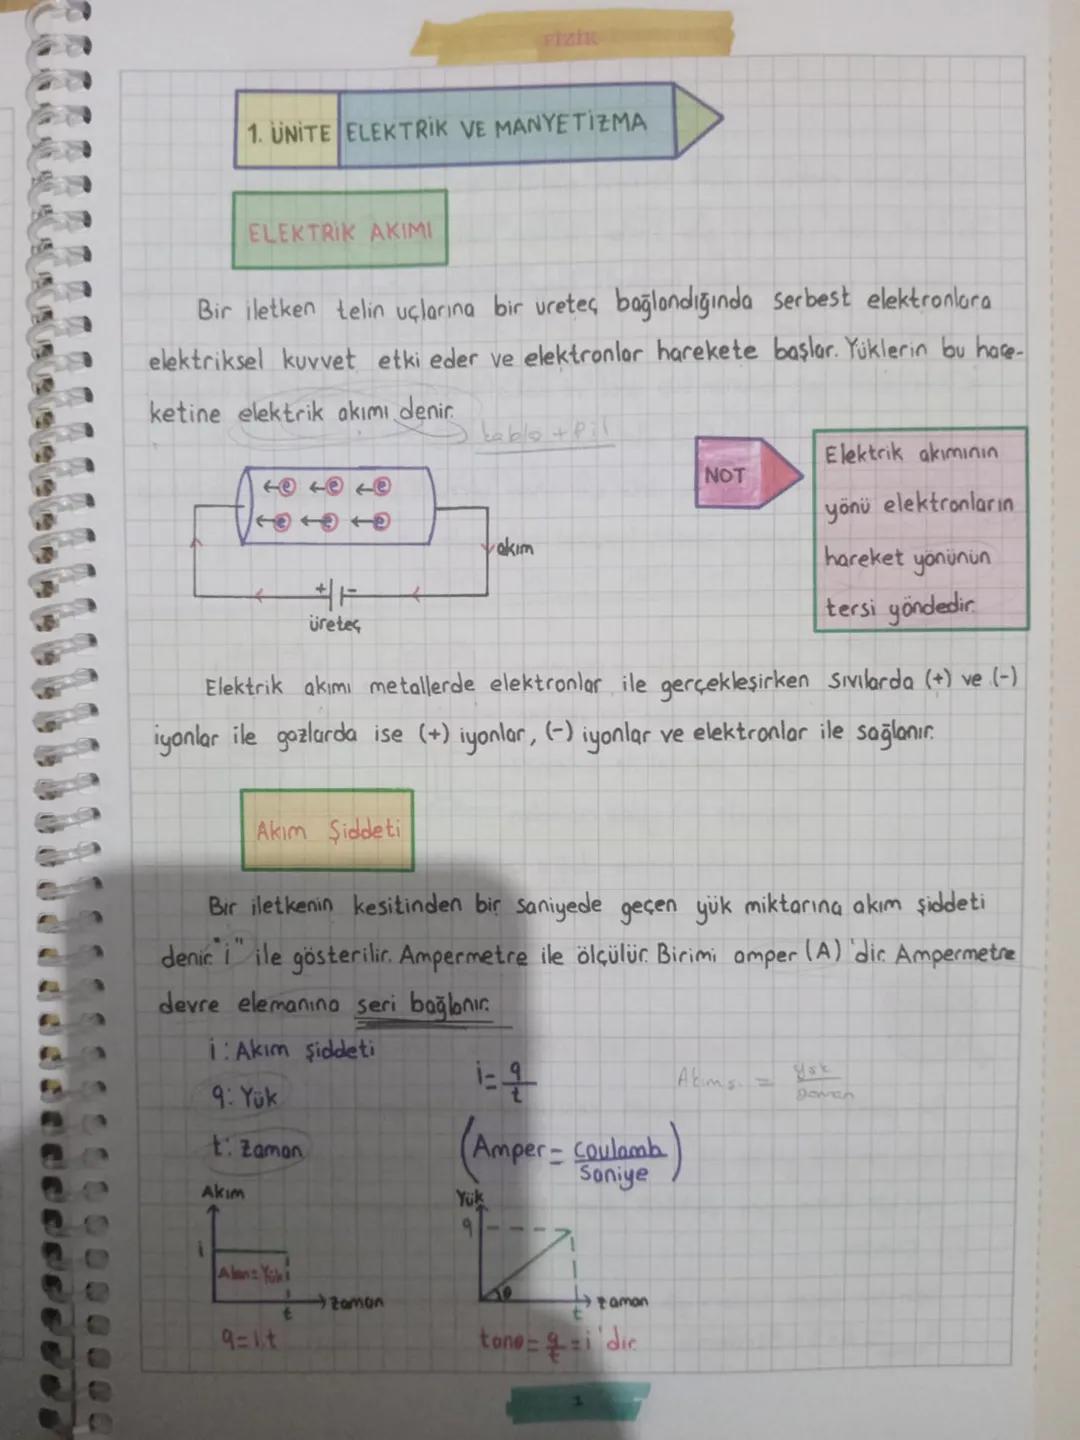 FİZİK
1. ÜNİTE ELEKTRİK VE MANYETİZMA
ELEKTRİK AKIMI
Bir iletken telin uçlarına bir ureteç bağlandığında serbest elektronlara
elektriksel kuvvet etki eder ve elektronlar harekete başlar. Yüklerin bu hare-
ketine elektrik akımı denir.
kablo + pil
NOT
Elektrik akımının
yönü elektronların
hareket yönünün
tersi yöndedir.
e e e
e e e
akım
+ -
üreteç
Elektrik akımı metallerde elektronlar ile gerçekleşirken sıvılarda (+) ve (-)
iyonlar ile gazlarda ise (+) iyonlar, (-) iyonlar ve elektronlar ile sağlanır.
Akım Şiddeti
Bir iletkenin kesitinden bir saniyede geçen yük miktarına akım şiddeti
denir. "i" ile gösterilir. Ampermetre ile ölçülür. Birimi amper (A) 'dir. Ampermetre
devre elemanına seri bağlanır.
i : Akım şiddeti
q: Yük
t: Zaman
i = q/t
Akım ş. = yük/zaman
(Amper = Coulomb/Saniye)
Akım
i
Alan = Yük
t
zaman
q = i.t
Yük
q
θ
t
zaman
tanθ = q/t = i 'dir.
1